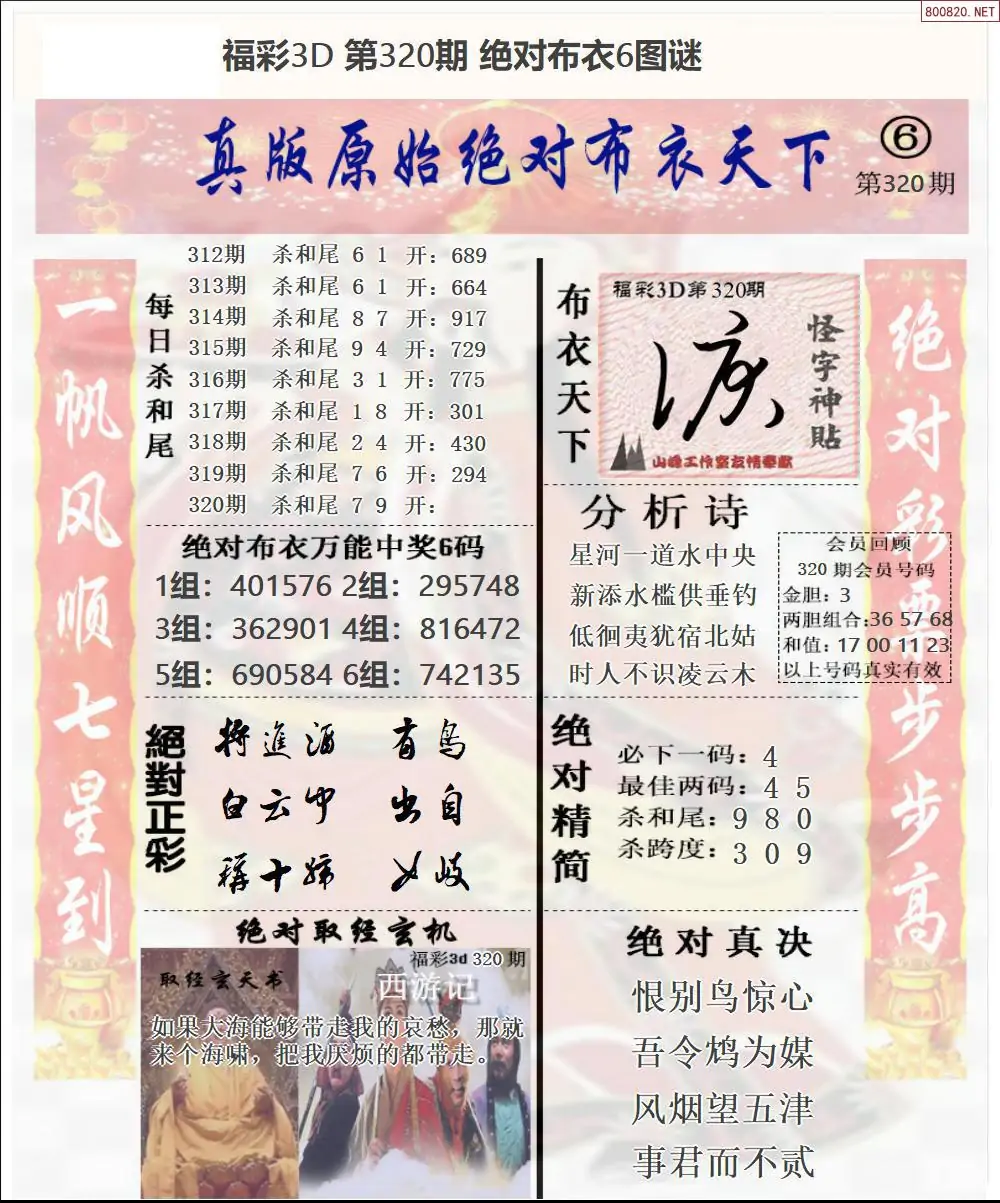 800820.NET
福彩3D 第320期 绝对布衣6图谜
真版原始绝对布衣天下
6
第320期
一帆风顺七星到
每日杀和尾
312期 杀和尾 6 1 开：689
313期 杀和尾 6 1 开：664
314期 杀和尾 8 7 开：917
315期 杀和尾 9 4 开：729
316期 杀和尾 3 1 开：775
317期 杀和尾 1 8 开：301
318期 杀和尾 2 4 开：430
319期 杀和尾 7 6 开：294
320期 杀和尾 7 9 开：
绝对布衣万能中奖6码
1组：401576 2组：295748
3组：362901 4组：816472
5组：690584 6组：742135
絕對正彩
将進酒 有鸟
白云中 出自
出自
十 岐
绝对取经玄机
福彩3d 320 期
取经玄天书
西游记
如果大海能够带走我的哀愁，那就
来个海啸，把我厌烦的都带走。
布衣天下
福彩3D第320期
怪字神贴
山峰工作室友情奉献
分析诗
星河一道水中央
新添水槛供垂钓
低徊夷犹宿北姑
时人不识凌云木
会员回顾
320 期会员号码
金胆：3
两胆组合:36 57 68
和值：17 00 11 23
以上号码真实有效
绝对精简
必下一码：4
最佳两码：4 5
杀和尾：9 8 0
杀跨度：3 0 9
绝对真决
恨别鸟惊心
吾令鸩为媒
风烟望五津
事君而不贰
绝对彩票步步高